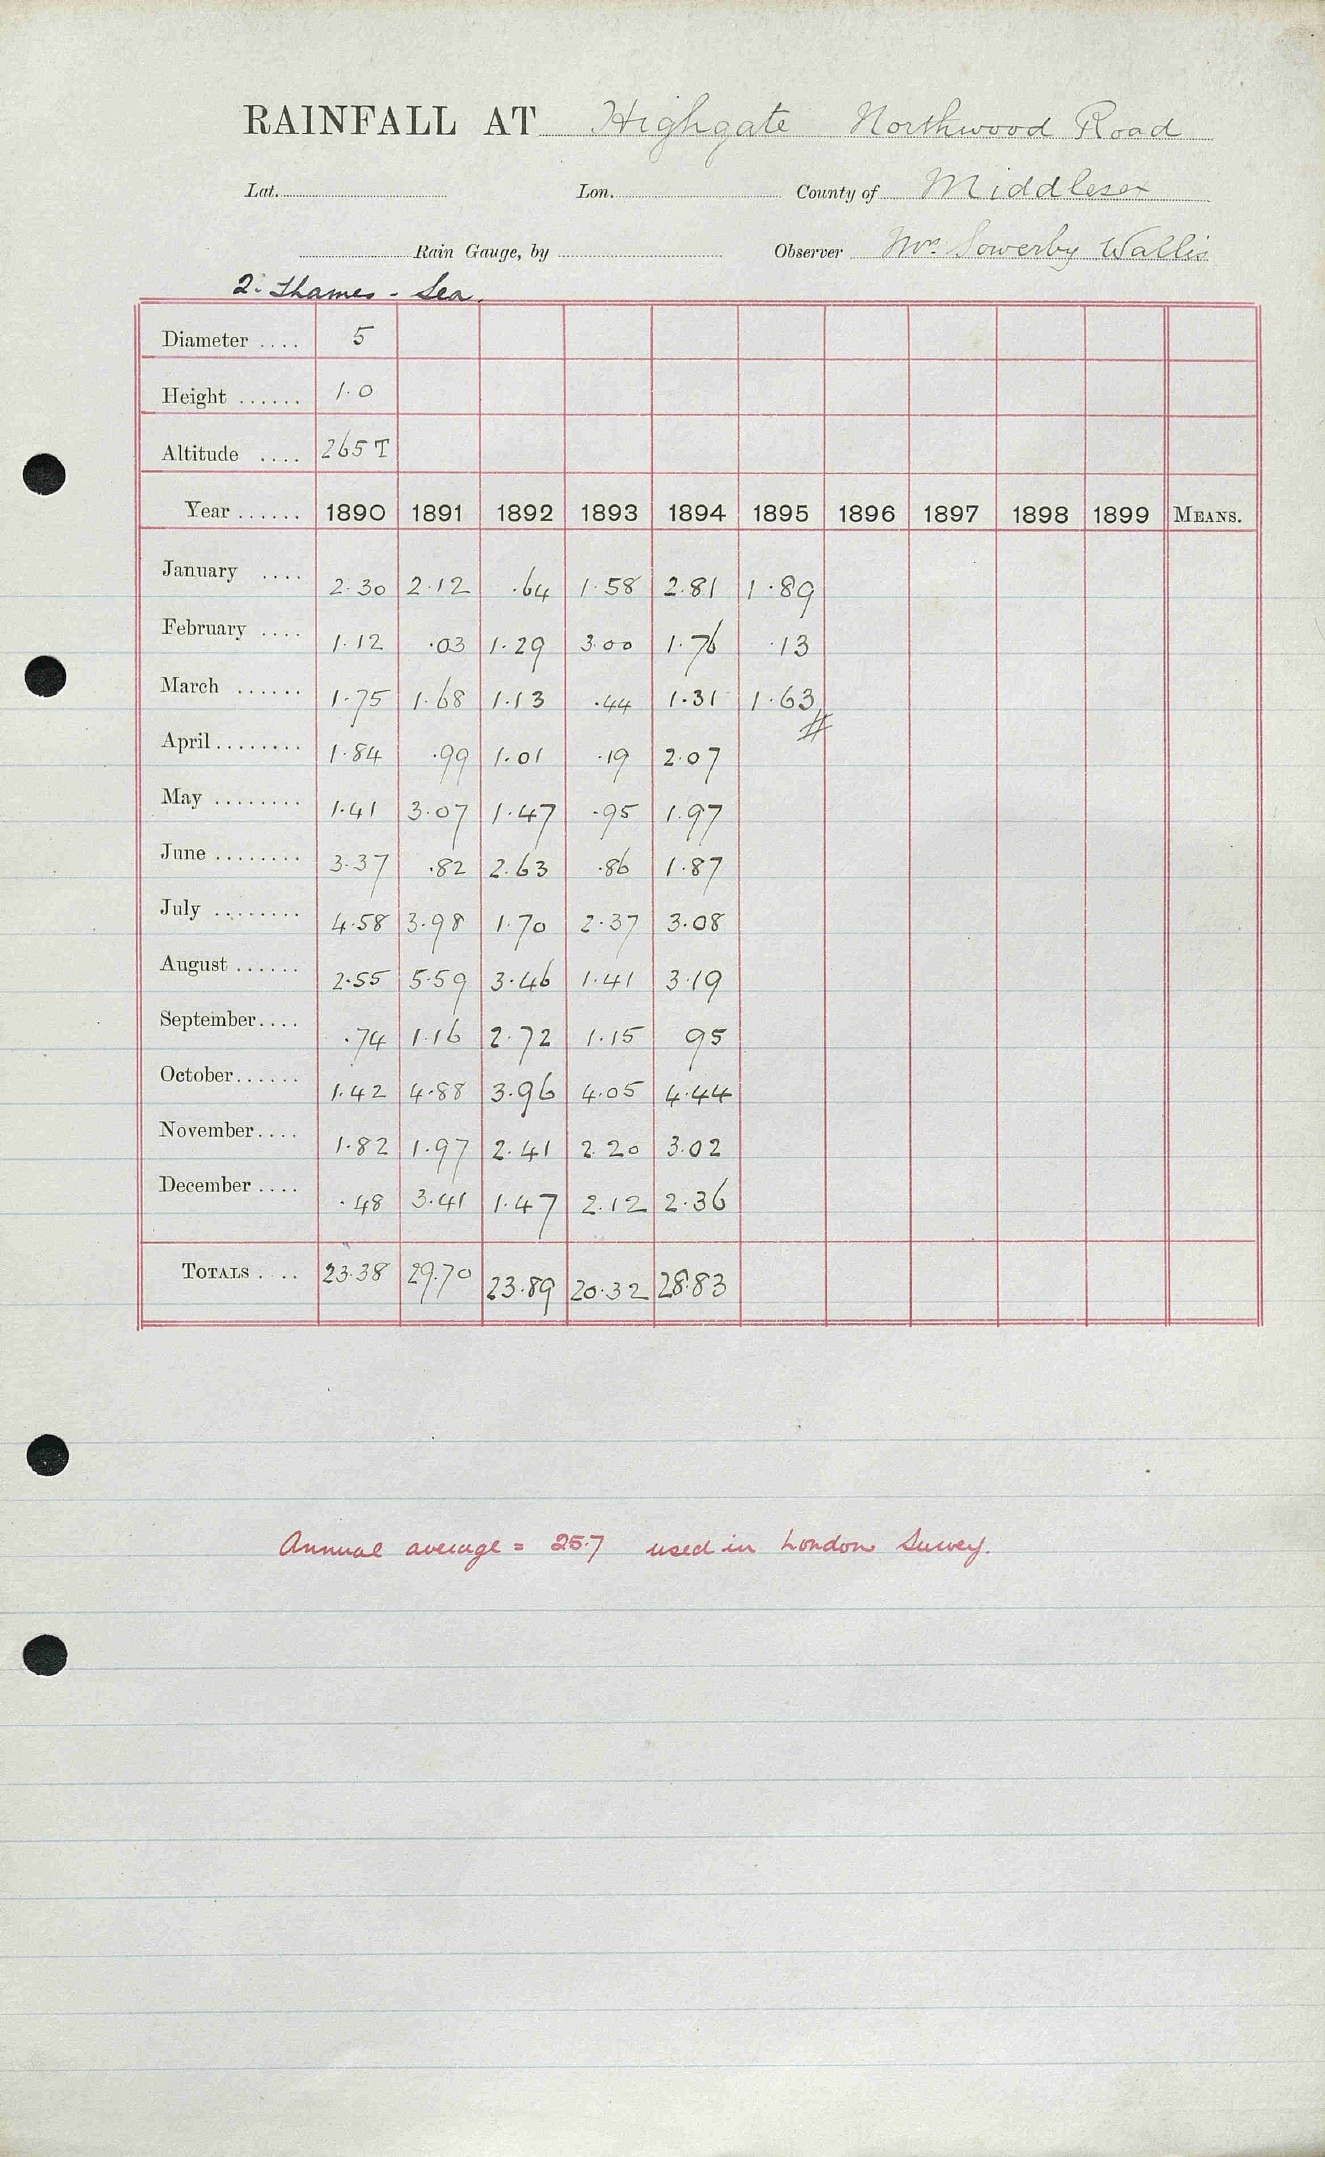 RAINFALL AT Highgate Northwood Road
Lat. Lon. County of Middlesex
Rain Gauge, by Observer Mrs. Sowerby Wallis
2. Thames - Sea.
Diameter .... 5
Height ...... 1.0
Altitude .... 265 T
Year ...... 1890 1891 1892 1893 1894 1895 1896 1897 1898 1899 MEANS.
January .... 2.30 2.12 .64 1.58 2.81 1.89
February .... 1.12 .03 1.29 3.00 1.76 .13
March ...... 1.75 1.68 1.13 .44 1.31 1.63
April ........ 1.84 .99 1.01 .19 2.07
May ........ 1.41 3.07 1.47 .95 1.97
June ........ 3.37 .82 2.63 .86 1.87
July ........ 4.58 3.98 1.70 2.37 3.08
August ...... 2.55 5.59 3.46 1.41 3.19
September .... .74 1.16 2.72 1.15 95
October ...... 1.42 4.88 3.96 4.05 4.44
November .... 1.82 1.97 2.41 2.20 3.02
December .... .48 3.41 1.47 2.12 2.36
TOTALS .... 23.38 29.70 23.89 20.32 28.83
Annual average = 25.7 used in London Survey.